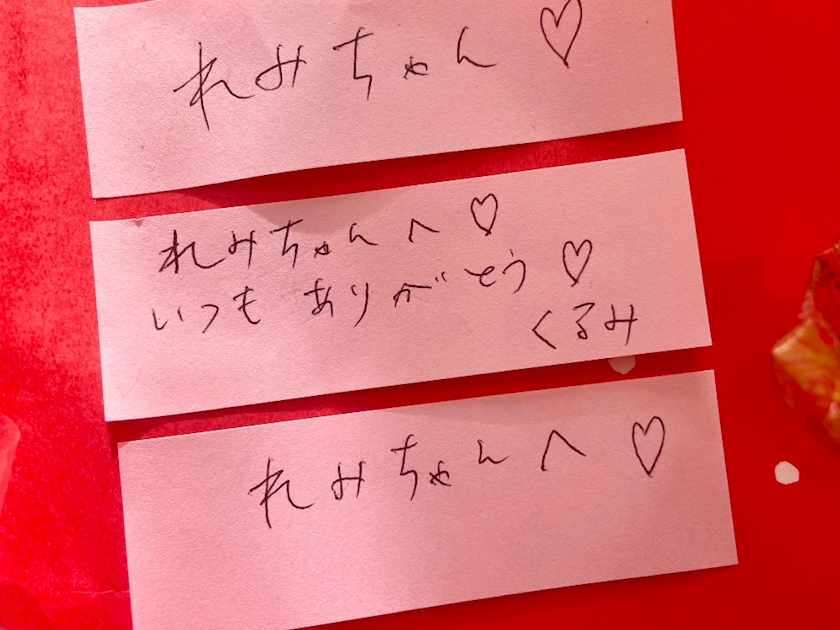 れみちゃん♡
れみちゃんへ♡
いつもありがとう♡
くるみ
れみちゃんへ♡